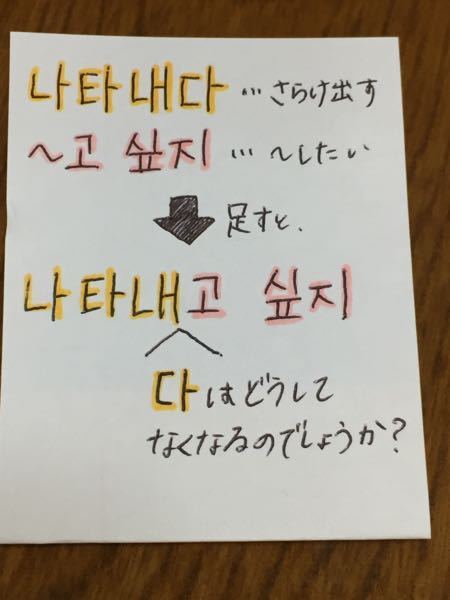 나타내다…さらけ出す
~고 싶지…~したい
足すと、
나타내고 싶지
다はどうして
なくなるのでしょうか?